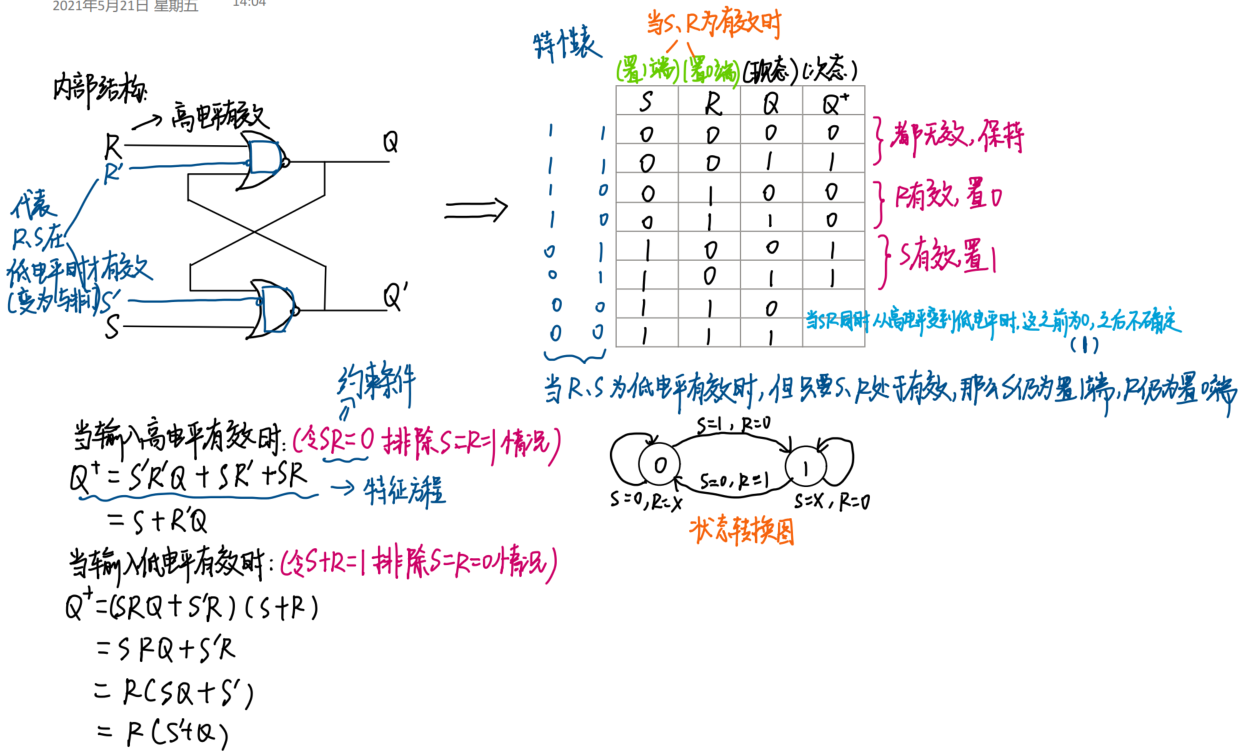 2021年5月21日 星期五 14:04
内部结构:
R → 高电平有效
R'
Q
代表
R、S在
低电平时才有效
(变为与非门)
S'
S
Q'
特性表
当S、R为有效时
(置1端) (置0端) (现态) (次态)
S R Q Q⁺
1 1 0 0 0 0
1 1 0 0 1 1
都无效,保持
1 0 0 1 0 0
1 0 0 1 1 0
R有效,置0
0 1 1 0 0 1
0 1 1 0 1 1
S有效,置1
0 0 1 1 0
0 0 1 1 1
当SR同时从高电平变到低电平时,这之前为0,之后不确定
(1)
当R、S为低电平有效时,但只要S、R处于有效,那么S仍为置1端,R仍为置0端
约束条件
当输入高电平有效时:(令SR=0 排除S=R=1情况)
Q⁺ = S'R'Q + SR' + SR → 特征方程
= S + R'Q
当输入低电平有效时:(令S+R=1 排除S=R=0情况)
Q⁺=(SRQ + S'R) (S+R)
= SRQ + S'R
= R(SQ + S')
= R(S'+Q)
S=1, R=0
0
1
S=0, R=1
S=0, R=X
S=X, R=0
状态转换图